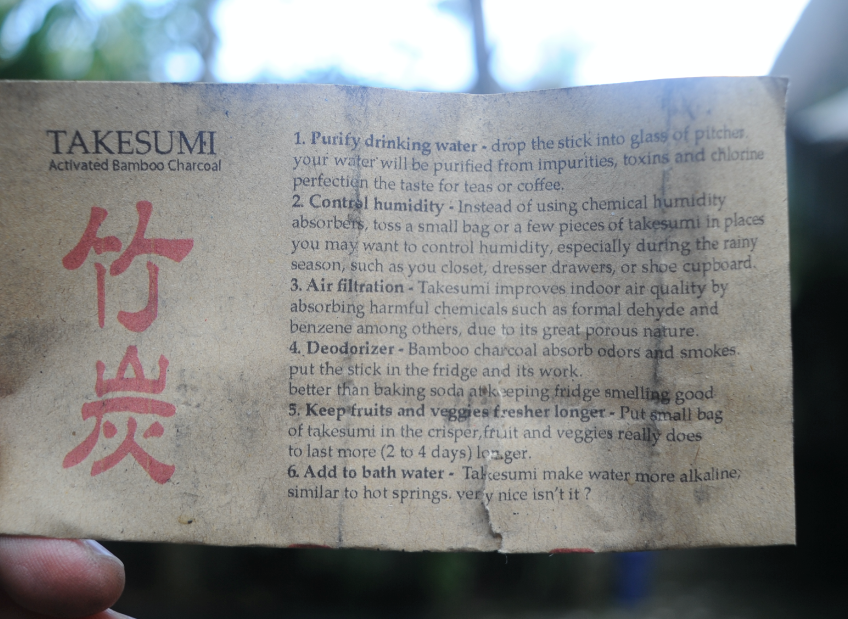 TAKESUMI
Activated Bamboo Charcoal
竹
炭
1. Purify drinking water - drop the stick into glass of pitcher.
your water will be purified from impurities, toxins and chlorine
perfection the taste for teas or coffee.
2. Control humidity - Instead of using chemical humidity
absorbers, toss a small bag or a few pieces of takesumi in places
you may want to control humidity, especially during the rainy
season, such as you closet, dresser drawers, or shoe cupboard.
3. Air filtration - Takesumi improves indoor air quality by
absorbing harmful chemicals such as formal dehyde and
benzene among others, due to its great porous nature.
4. Deodorizer - Bamboo charcoal absorb odors and smokes.
put the stick in the fridge and its work.
better than baking soda at keeping fridge smelling good
5. Keep fruits and veggies fresher longer - Put small bag
of takesumi in the crisper, fruit and veggies really does
to last more (2 to 4 days) longer.
6. Add to bath water - Takesumi make water more alkaline,
similar to hot springs. very nice isn't it ?